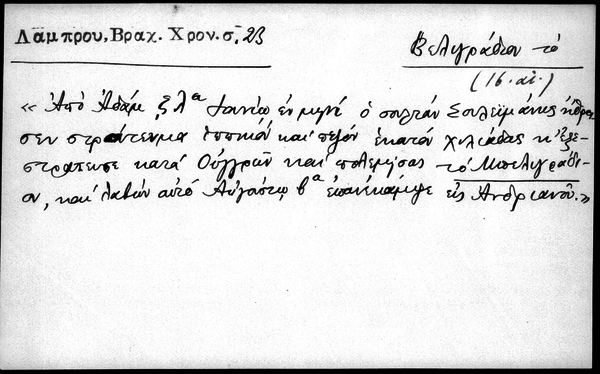 Λάμπρου, Βραχ. Χρον. σ. 23
Βελιγράδιον τὸ
(16. αἰ.)
« Ἀπὸ Ἀδάμ ζλα Ἰαννίῳ ἐν μηνί ὁ σουλτάν Σουλεϊμάνης ἤθροι-
σεν στράτευμα ἱππικόν καί πεζόν ἑκατόν χιλιάδας κ' ἐξε-
στράτευσε κατά Οὔγγρων καί πολεμήσας τό Μπελιγράδι-
ον, καί λαβών αὐτό Αὐγούστῳ βα ἐπανέκαμψε εἰς Ἀνδριανοῦ.»